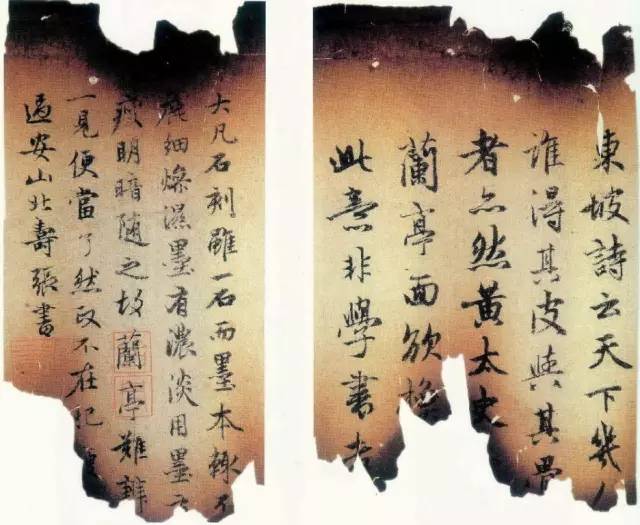 東坡詩云天下幾人
誰得其皮與其骨
者亦然黃太史
蘭亭面欲換
此意非學書者
大凡石刻雖一石而墨本輒不
麄細燥濕墨有濃淡用墨有
瘦明暗隨之故蘭亭難辨
一見便當了然政不在肥
過安山北壽張書